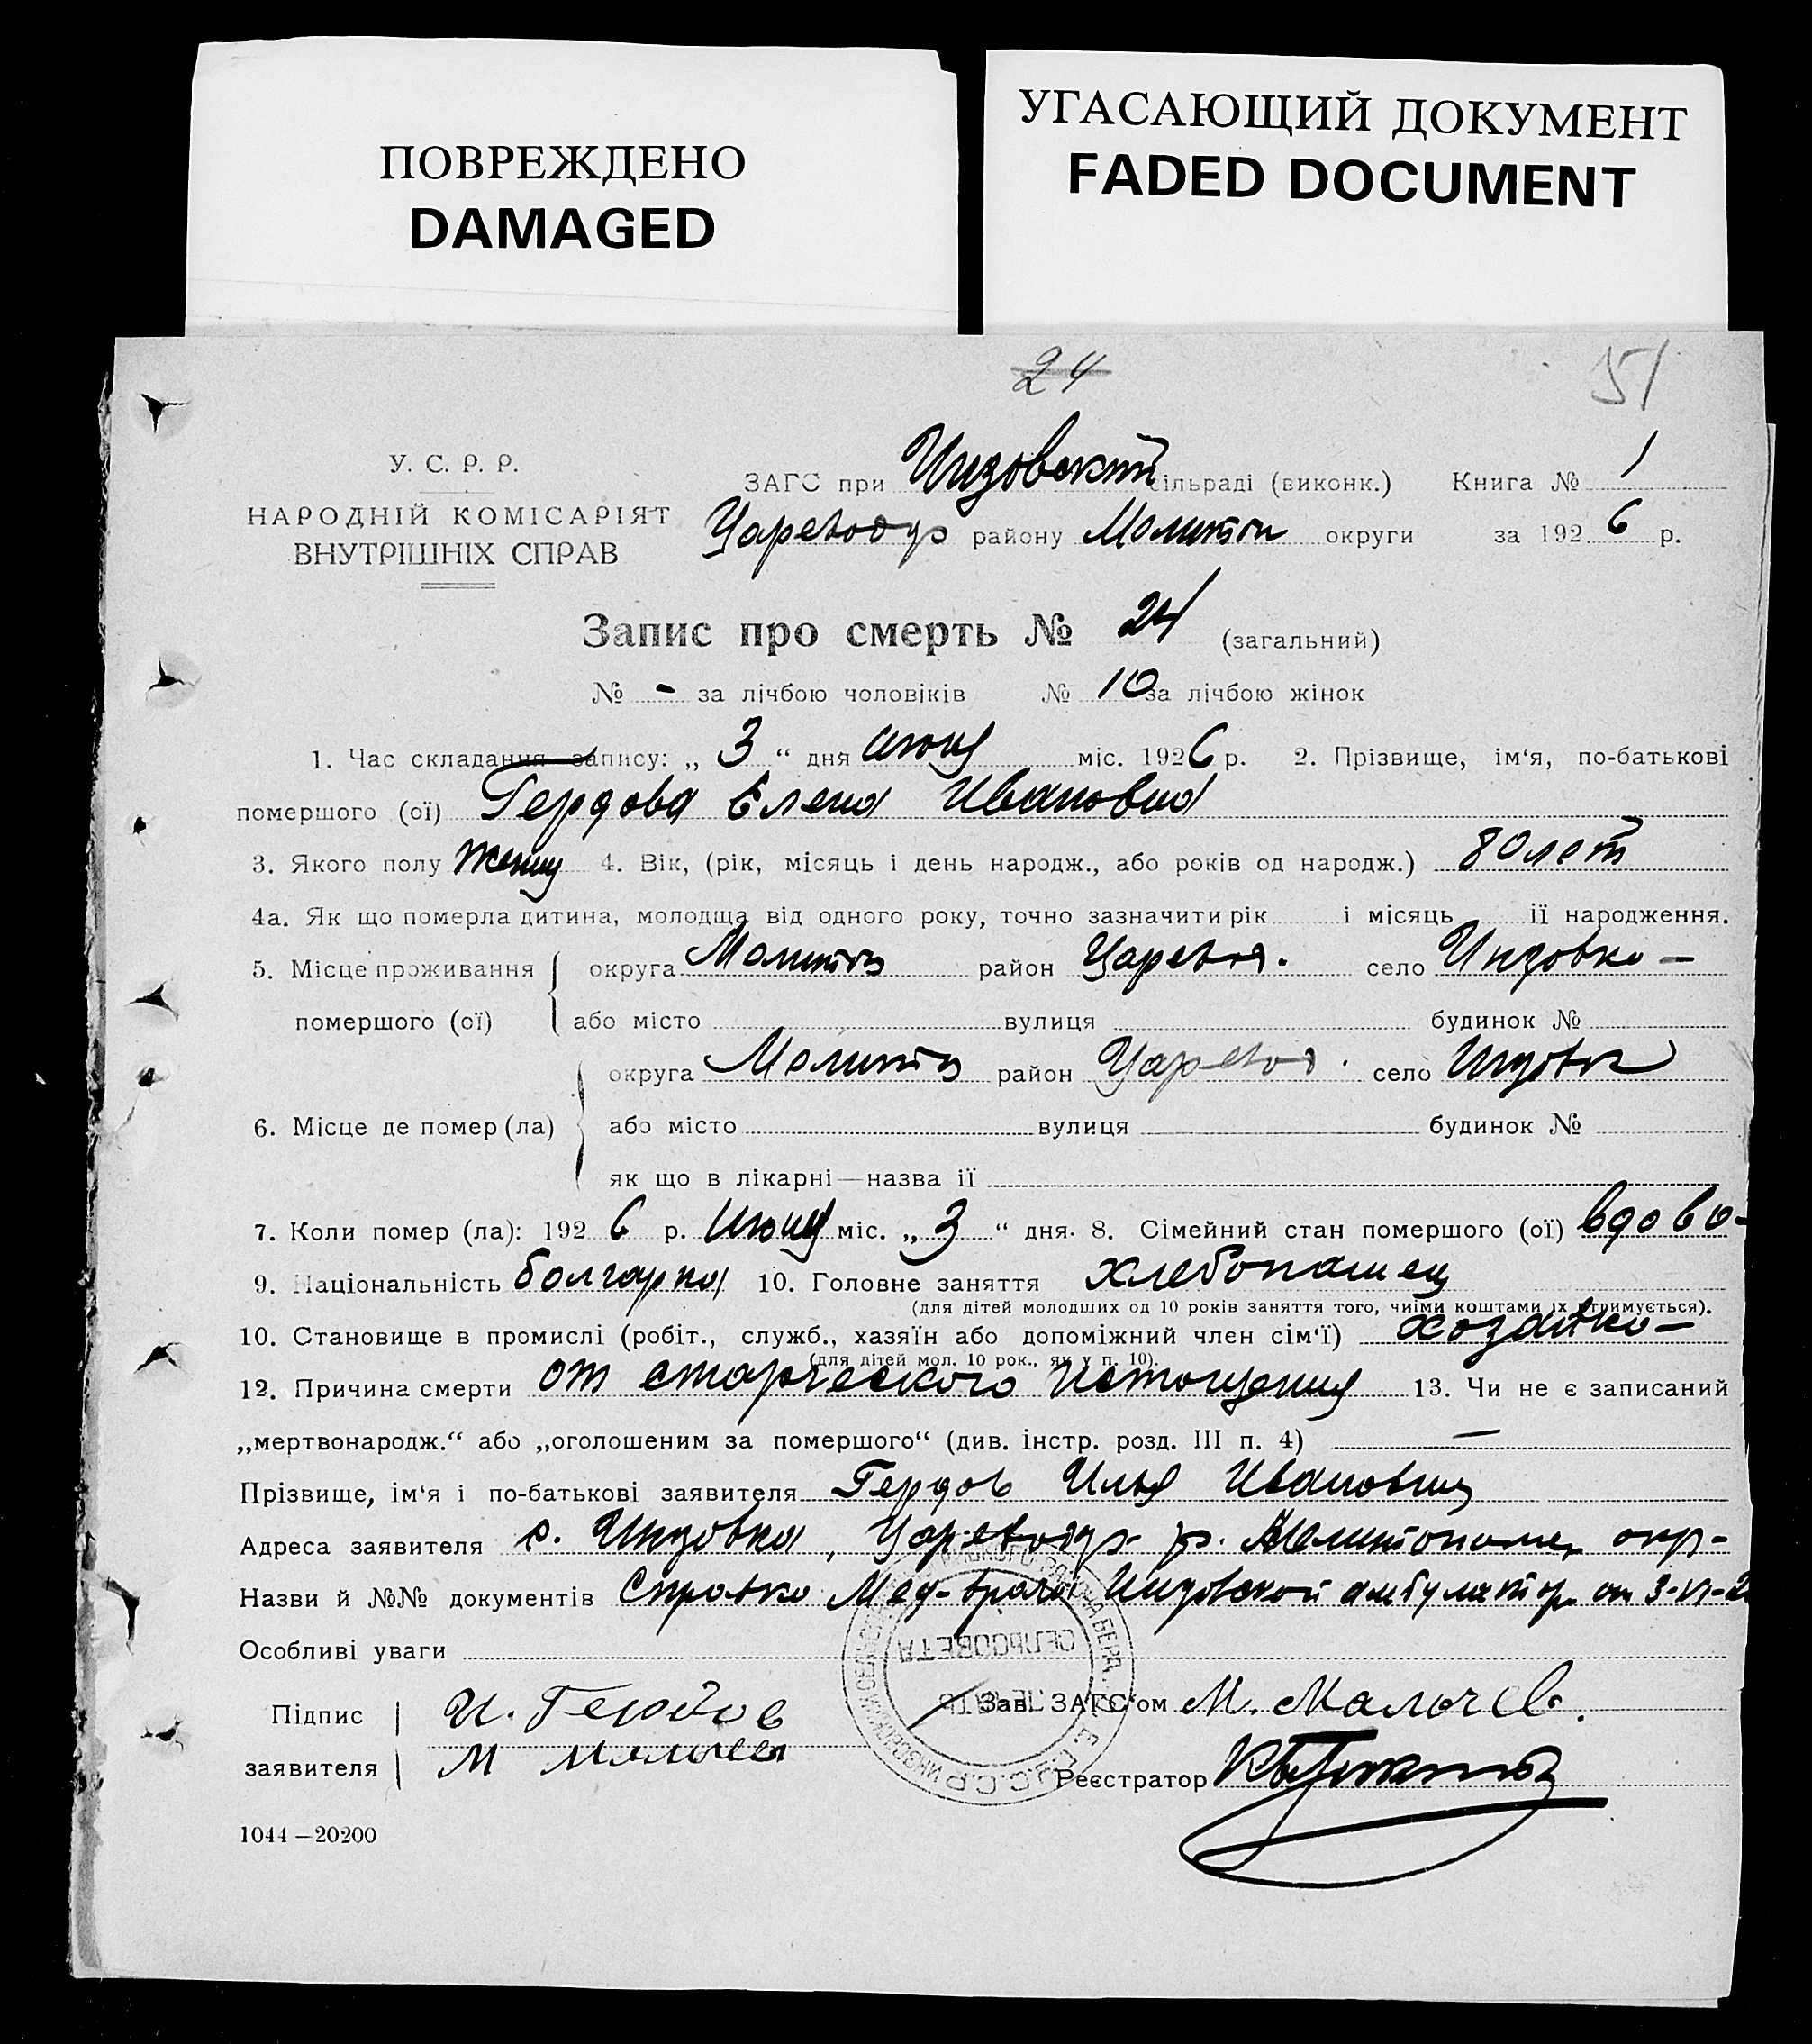 ПОВРЕЖДЕНО
DAMAGED
УГАСАЮЩИЙ ДОКУМЕНТ
FADED DOCUMENT
24
51
У. С. Р. Р.
НАРОДНІЙ КОМІСАРІЯТ
ВНУТРІШНІХ СПРАВ
ЗАГС при Инзовской сільраді (виконк.) Книга № 1
Царевод району Мелитоп округи за 1926 р.
Запис про смерть № 24 (загальний)
№ - за лічбою чоловіків № 10 за лічбою жінок
1. Час складання запису: „ 3 “ дня июня міс. 1926 р. 2. Прізвище, ім‘я, по-батькові
помершого (ої) Гердова Елена Ивановна
3. Якого полу женщ 4. Вік, (рік, місяць і день народж., або років од народж.) 80 лет
4а. Як що померла дитина, молодща від одного року, точно зазначити рік і місяць її народження.
5. Місце проживання округа Мелитоп район Царевод. село Инзовка –
помершого (ої) або місто вулиця будинок №
округа Мелитоп район Царевод. село Инзовк
6. Місце де помер (ла) або місто вулиця будинок №
як що в лікарні—назва її
7. Коли помер (ла): 1926 р. июня міс. „ 3 “ дня. 8. Сімейний стан помершого (ої) вдова-
9. Національність болгарка 10. Головне заняття хлебопашец
(для дітей молодших од 10 років заняття того, чиїми коштами їх утримується).
10. Становище в промислі (робіт., служб., хазяїн або допоміжний член сім‘ї) хозяйка –
(для дітей мол. 10 рок., як у п. 10).
12. Причина смерти от старческого истощения 13. Чи не є записаний
„мертвонародж.“ або „оголошеним за помершого“ (див. інстр. розд. III п. 4) —
Прізвище, ім‘я і по-батькові заявителя Гердов Илья Иванович
Адреса заявителя с. Инзовка, Царевод р. Мелитопол. окр-
Назви й №№ документів Справка Мед-врача Инзовской амбулатор. от 3-VI-2
Особливі уваги
Підпис И. Гердов Зав. ЗАГС‘ом М. Малычев.
заявителя М Реєстратор
СЕЛЬСОВЕТА
1044—20200